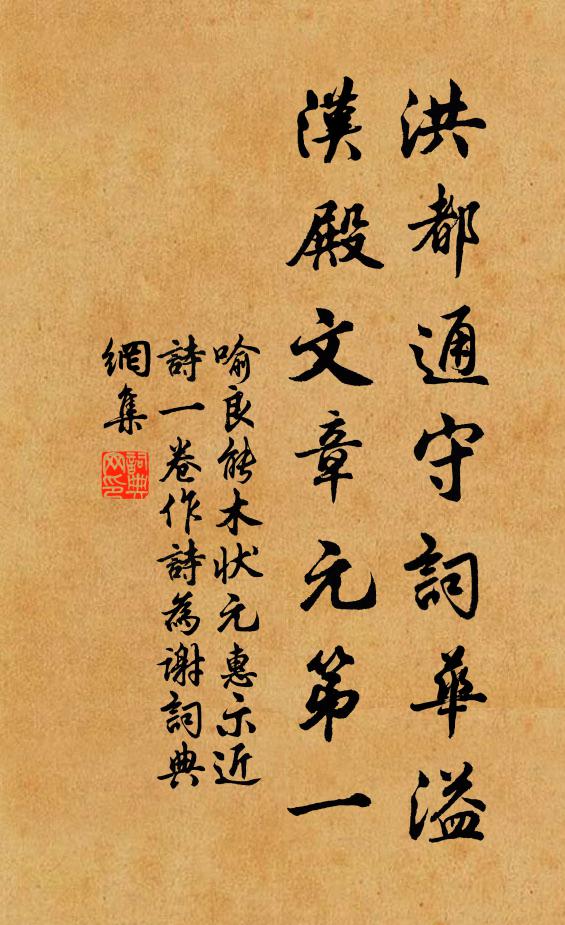 洪都通守詞華溢
漢殿文章元第一
喻良能木狀元惠示近
詩一卷作詩為謝詞典
網集
詞典網印